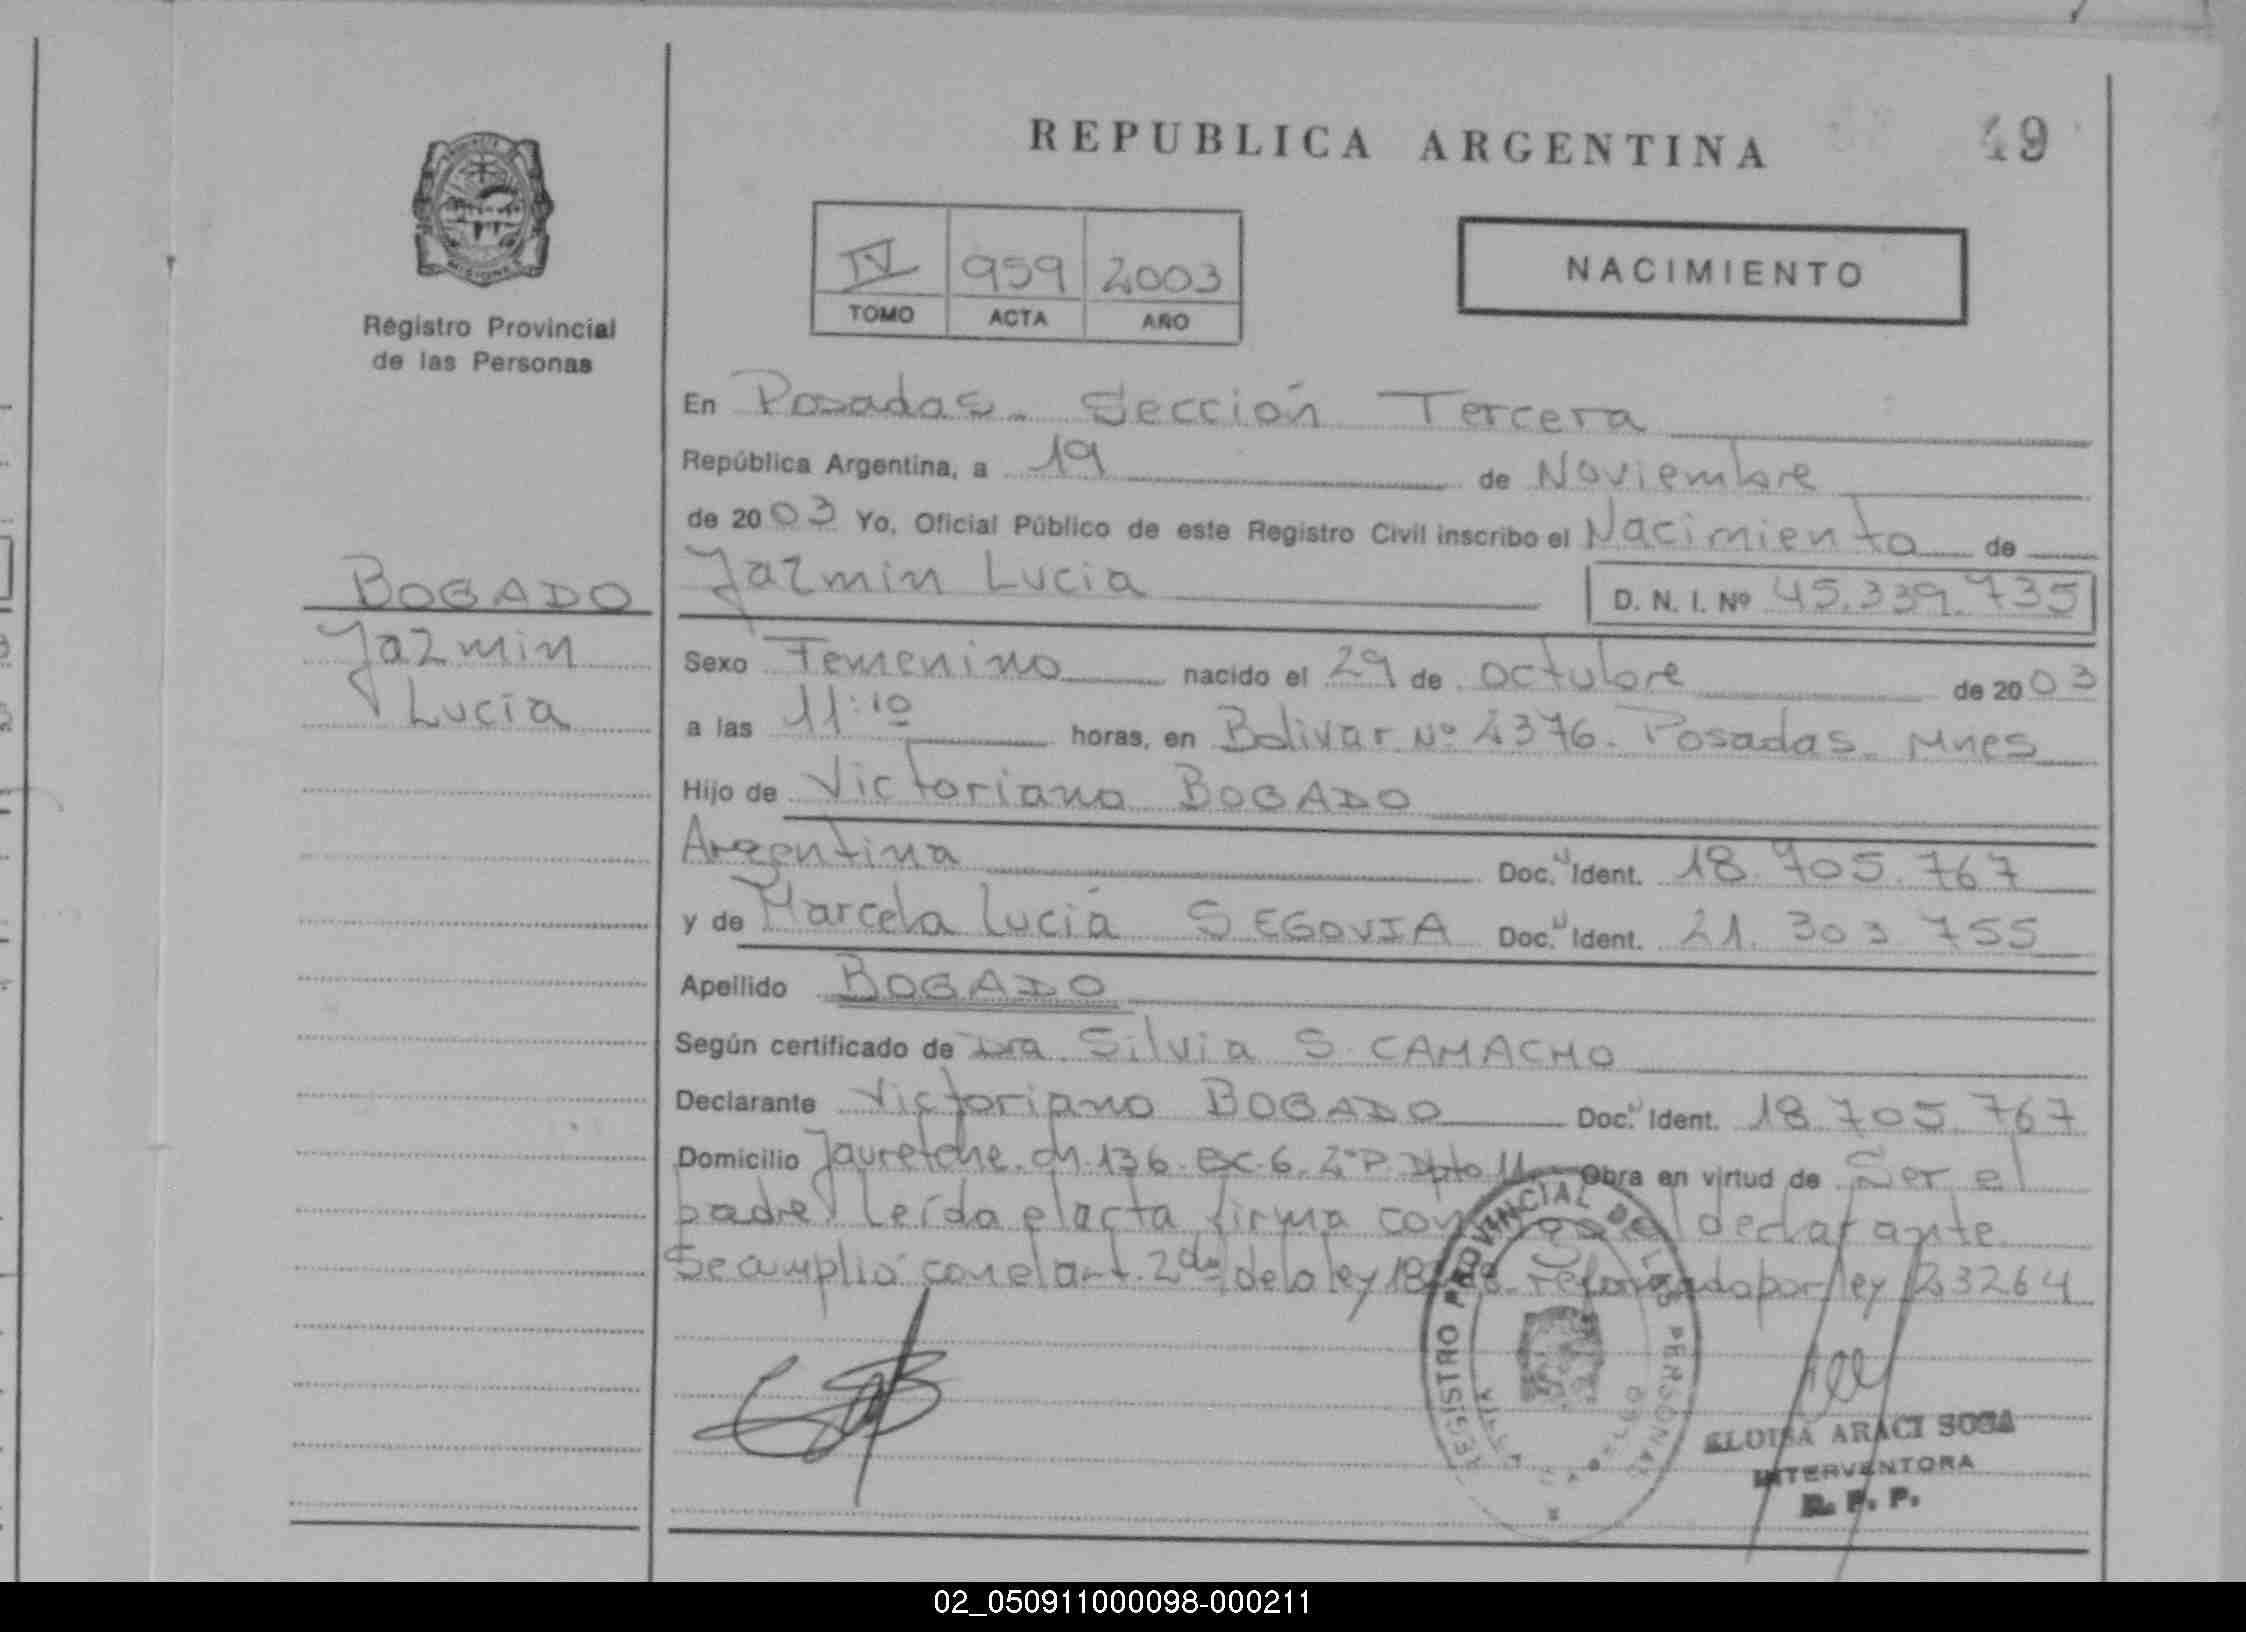 REPUBLICA ARGENTINA
49
IV 959 2003
TOMO ACTA AÑO
NACIMIENTO
Registro Provincial
de las Personas
BOGADO
Jazmin
Lucía
En Posadas. Sección Tercera
República Argentina, a 19 de Noviembre
de 2003 Yo, Oficial Público de este Registro Civil inscribo el Nacimiento de
Jazmin Lucia D. N. I. Nº 45.339.735
Sexo Femenino nacido el 29 de octubre de 2003
a las 11:10 horas, en Bolivar Nº 4376. Posadas. Mnes
Hijo de Victoriano BOGADO
Argentina Doc. Ident. 18.705.767
y de Marcela Lucía SEGOVIA Doc. Ident. 21.303.755
Apellido BOGADO
Según certificado de Dra. Silvia S. CAMACHO
Declarante Victoriano BOGADO Doc. Ident. 18.705.767
Domicilio Jauretche. ch. 136. ex. 6. 2º P. Dpto Obra en virtud de Ser el
padre Leída el acta firma el declarante
Se amplió con el art. 2do de la ley reformado por ley 23264
REGISTRO PROVINCIAL DE LAS PERSONAS
ELOISA ARACI SOSA
INTERVENTORA
R. P. P.
02_050911000098-000211